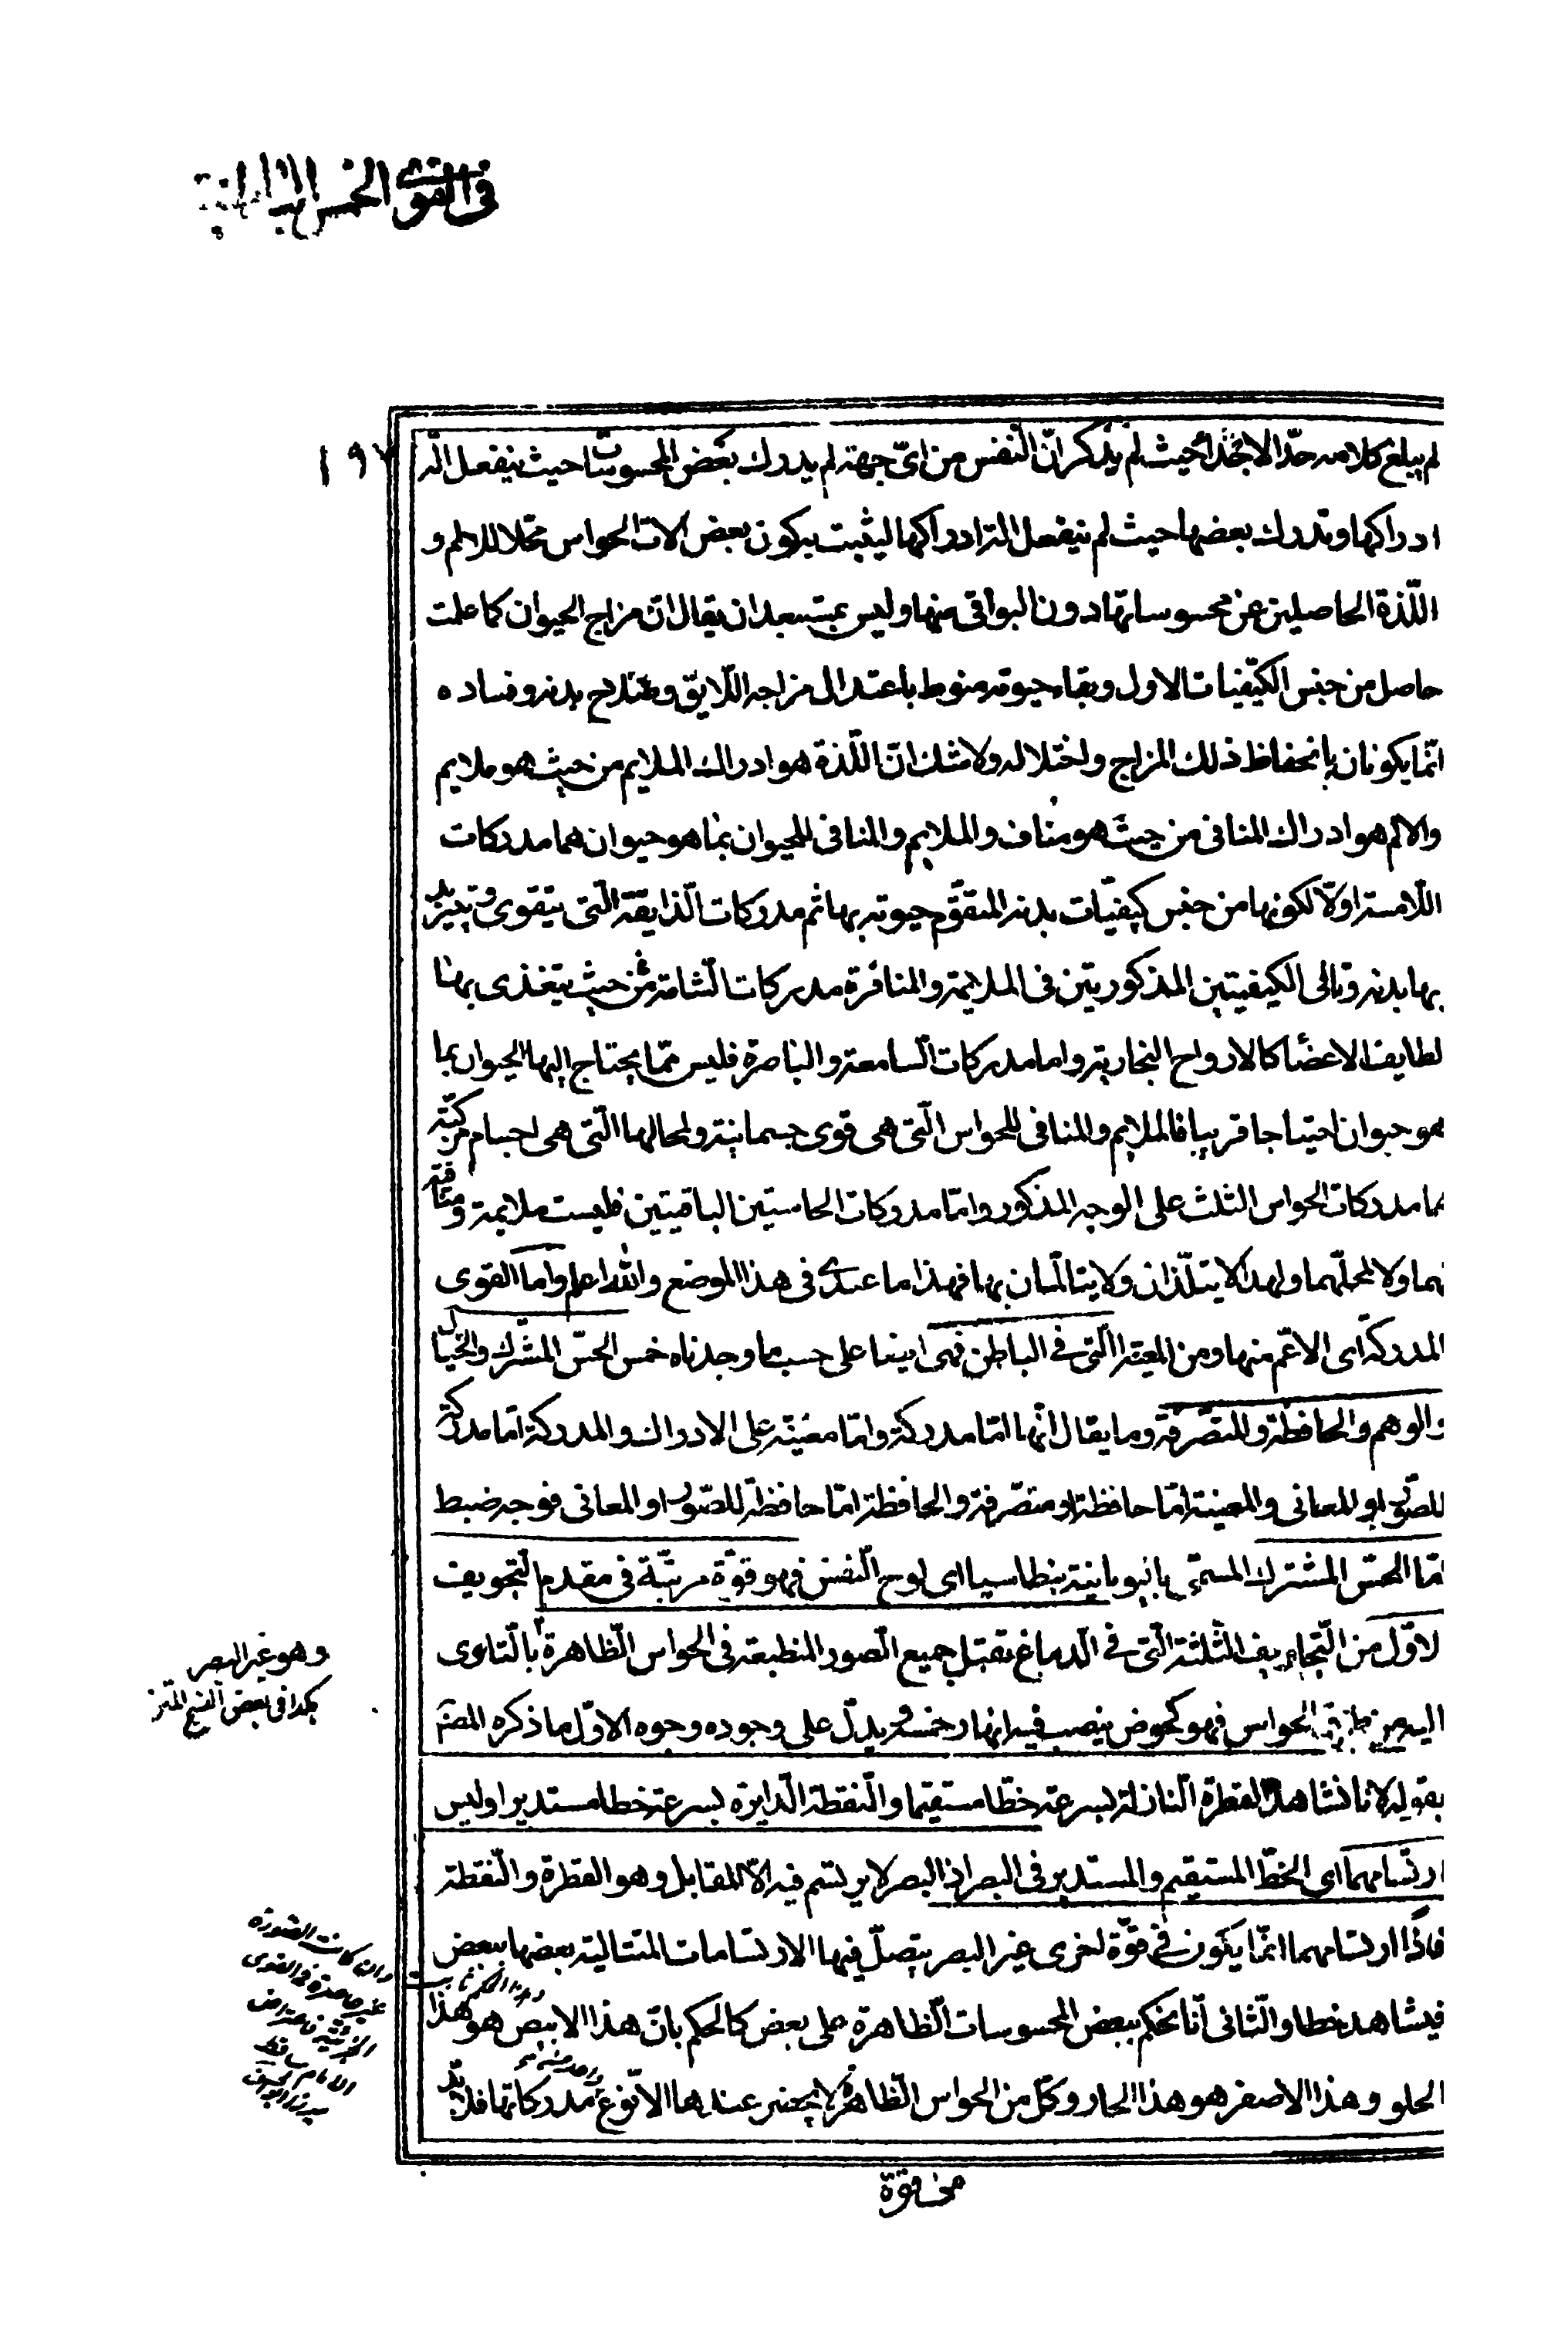 في القوى الخمس الباطنية
١٩٧
لم يبلغ كلامه حدّ الاجداء حيث لم يذكر انّ النّفس من اىّ جهة لم يدرك بعض المحسوسات حيث ينفعل الٓة
ادراكها وتدرك بعضها حيث لم ينفعل الة ادراكها ليثبت بكون بعض الات الحواس محلا للالم و
اللّذة الحاصلين عن محسوساتها دون البواقى منها وليس بمستبعد ان يقال انّ مزاج الحيوان كما علمت
حاصل من جنس الكيفيات الاول وبقاء حيوته منوط باعتدال مزاجه اللّايق وصلاح بدنه وفساده
انّما يكونان بانحفاظ ذلك المزاج واختلاله ولا شك انّ اللّذة هو ادراك الملايم من حيث هو ملايم
والالم هو ادراك المنافى من حيث هو مناف والملايم والمنافى للحيوان بما هو حيوان هما مدركات
اللّامسة اوّلا لكونها من جنس كيفيّات بدنه المتقوّم حيوته بها ثم مدركات الّذايقة الّتى يتقوى ويتزيد
بها بدنه وتالى الكيفيتين المذكوريتين فى الملايمة والمنافرة مدركات الشّامة من حيث يتغذى بها
لطايف الاعضا كالارواح البخارية واما مدركات السّامعة والباصرة فليس ممّا يحتاج اليها الحيوان بما
هو حيوان احتياجا قريبا فالملايم والمنافى للحواس الّتى هى قوى جسمانية ولمحالها الّتى هى اجسام مركبّة
هما مدركات الحواس الثلث على الوجه المذكور وامّا مدركات الحاستين الباقيتين فليست ملايمة ومنافية
لهما ولا لمحلّهما ولهذا لا يتلذّان ولا يتالّمان بها فهذا ما عندى فى هذا الموضع واللّه اعلم واما القوى
المدركة اى الاعّم منها ومن المعينة الّتى فى الباطن فهى ايضا على حسب ما وجدناه خمس الحسّ المشترك والخيال
والوهم والحافظة والمتصرّفة وما يقال انّها امّا مدركة وامّا معينة على الادراك والمدركة امّا مدركة
للصور او للمعانى والمعينة امّا حافظة او متصرّفة والحافظة امّا حافظة للصّور او المعانى فوجه ضبط
امّا الحسّ المشترك المسمّى باليونانية بنطاسيا اى لوح النّفس فهو قوّة مرتبّة فى مقدم التّجويف
الاوّل من التّجاويف الثّلثة الّتى فى الّدماغ تقبل جميع الّصور المنطبعة فى الحواس الّظاهرة بالتّادى
اليه من الحواس فهو كحوض ينصب فيه انهار خمسة ويدلّ على وجوده وجوه الاوّل ما ذكره المصّ
بقوله لانا نشاهد القطرة النّازلة بسرعة خطّا مستقيما والنّقطة الّدايرة بسرعة خطا مستديرا وليس
ارتسامهما اى الخطّ المستقيم والمستدير فى البصر اذ البصر لا يرتسم فيه الّا المقابل وهو القطرة والنّقطة
فاذًا ارتسامهما انّما يكون فى قوّة اخرى غير البصر يتصلّ فيها الارتسامات المتتالية بعضها ببعض
فيشاهد خطا والّثانى انّا نحكم ببعض المحسوسات الّظاهرة على بعض كالحكم بانّ هذا الابيض هو هذا
الحلو وهذا الاصفر هو هذا الحار وكلّ من الحواس الّظاهرة لا يحضر عندها الّا نوع مدركاتها فلا بدّ
من قوة
وهو غير البصر
كذا فى بعض النسخ المتن
وان كانت الصورة